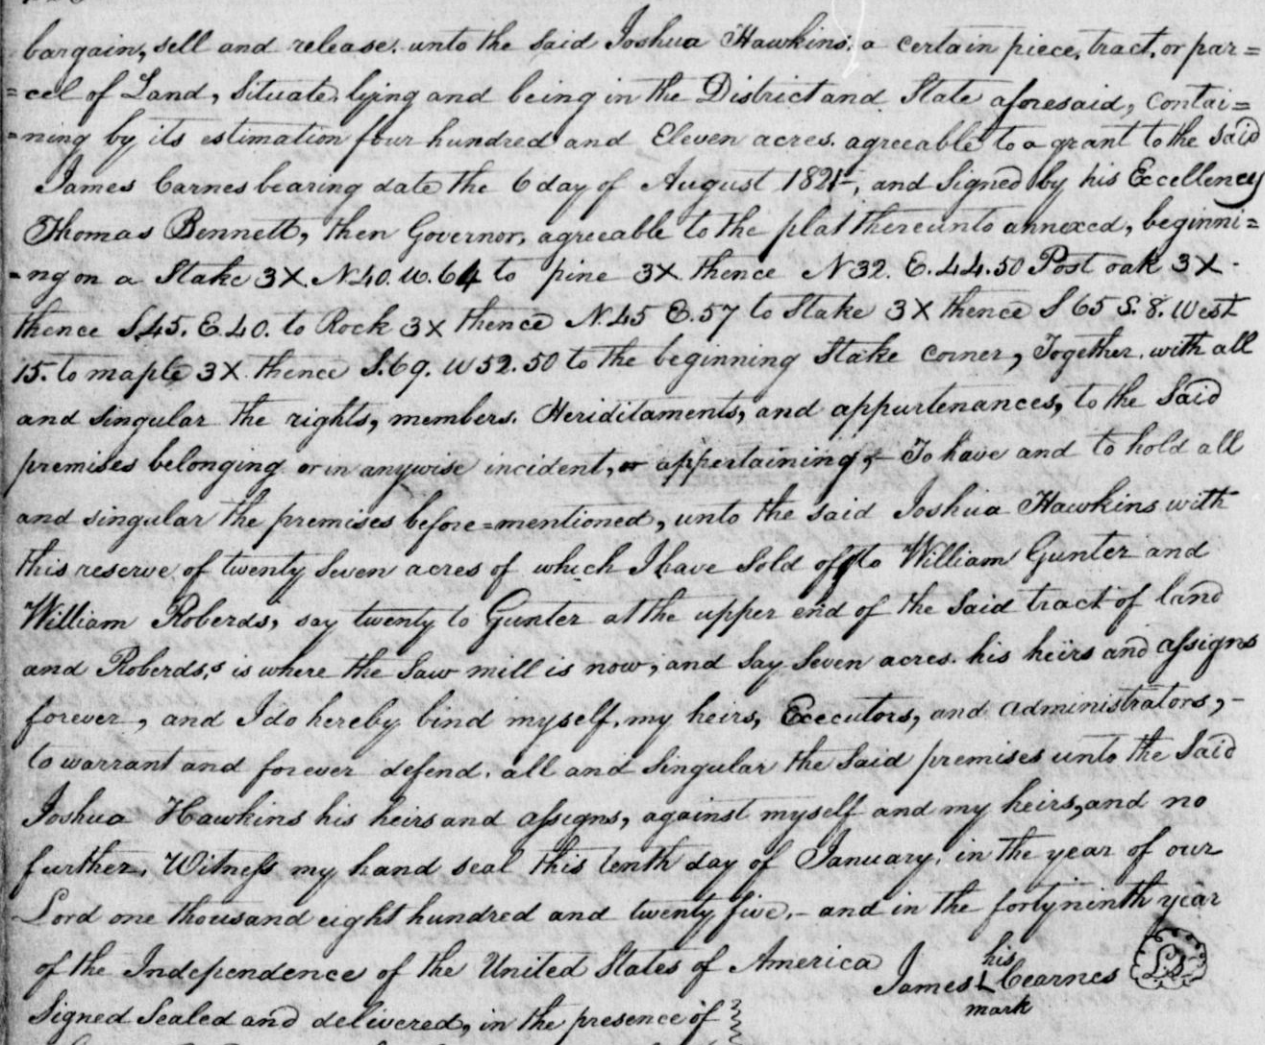 bargain, sell and release. unto the said Joshua Hawkins, a certain piece, tract, or par=
=cel of Land, Situate, lying and being in the District and State aforesaid, Contai=
=ning by its estimation four hundred and Eleven acres. agreeable to a grant to the Said
James Carnes bearing date the 6 day of August 1821, and Signed by his Excellency
Thomas Bennett, then Governor, agreeable to the plat thereunto annexed, beginni=
=ng on a Stake 3X. N40. W. 64 to pine 3X thence N32. E. 44.50 Post oak 3X.
thence S45. E. 40. to Rock 3X thence N.45 E. 57 to Stake 3X thence S 65 S. 8. West
15. to maple 3X. thence S.69. W 52.50 to the beginning Stake corner, Together. with all
and singular the rights, members. Heriditaments, and appurtenances, to the Said
premises belonging or in anywise incident, or appertaining, - To have and to hold all
and singular the premises before=mentioned, unto the said Joshua Hawkins with
this reserve of twenty Seven acres of which I have Sold off to William Gunter and
William Roberds, say twenty to Gunter at the upper end of the Said tract of land
and Roberds,s is where the Saw mill is now, and Say Seven acres. his heirs and assigns
forever, and I do hereby bind myself, my heirs, Executors, and administrators, -
to warrant and forever defend. all and Singular the Said premises unto the Said
Joshua Hawkins his heirs and assigns, against myself and my heirs, and no
further, Witness my hand seal this tenth day of January, in the year of our
Lord one thousand eight hundred and twenty five, - and in the forty ninth year
of the Independence of the United States of America
his
James Cearnes LS
mark
Signed Sealed and delivered, in the presence of